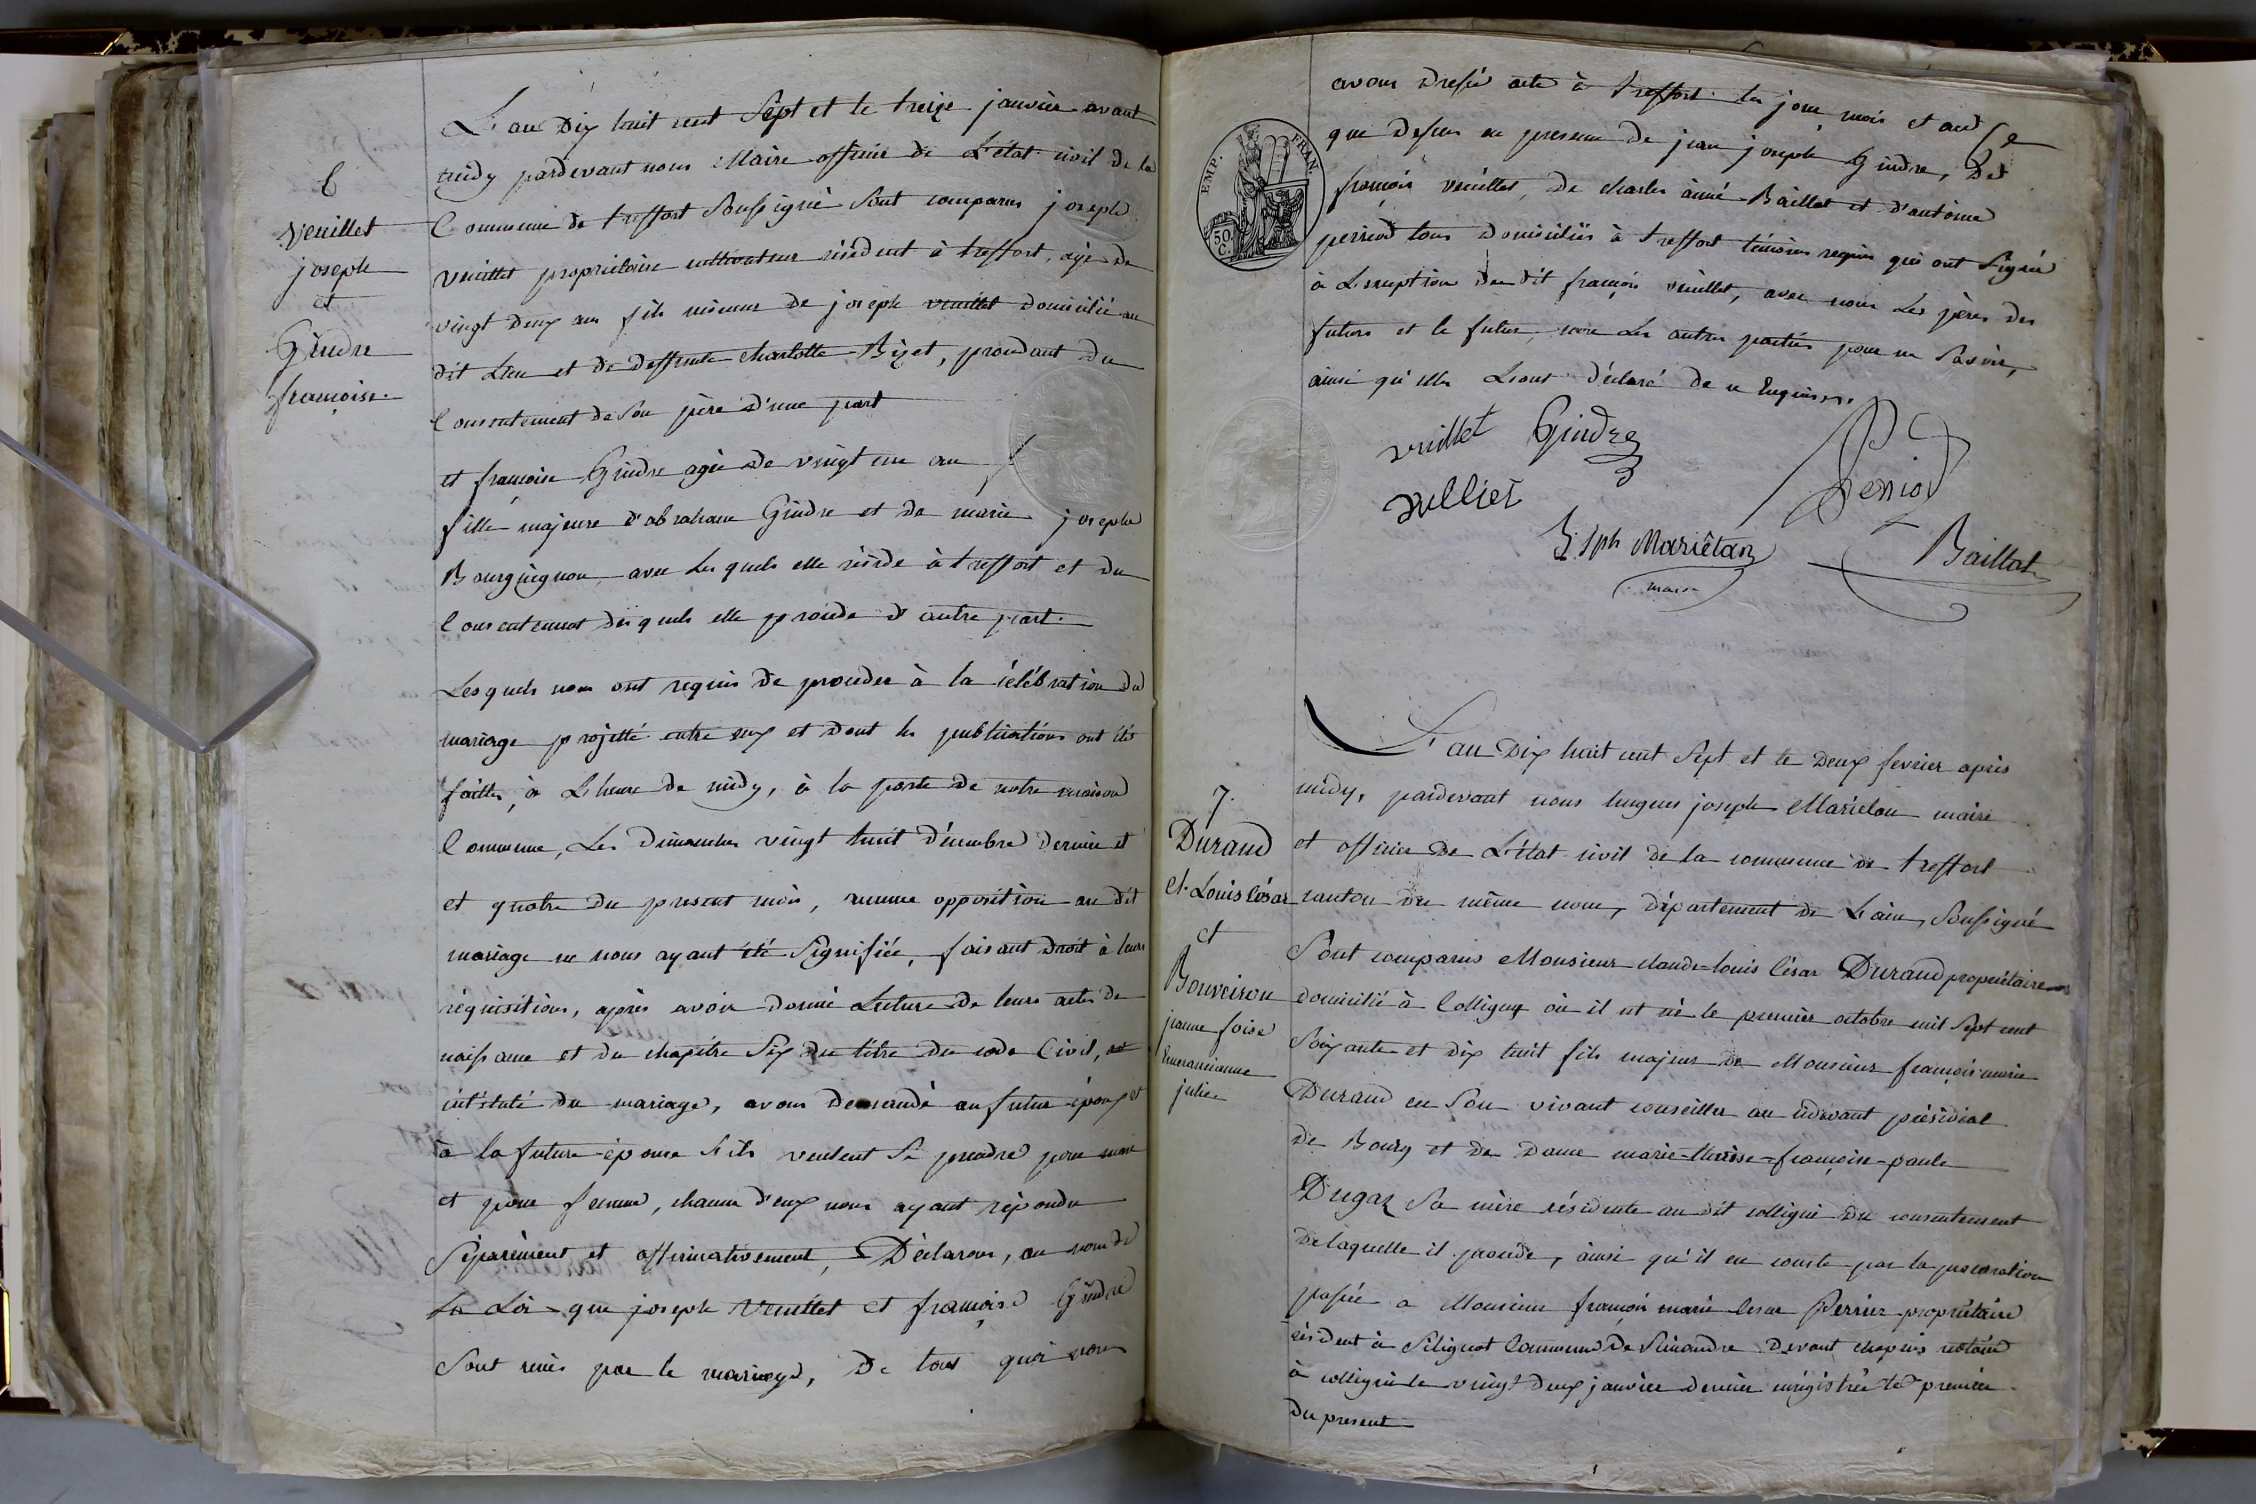 6
Veuillet
joseph
et
Gindre
françoise
L'an Dix huit cent Sept et le treize janvier avant
midy pardevant nous Maire officier de L'état civil de la
Commune de treffort Soussigné Sont comparus joseph
veuillet propriétaire cultivateur résident à treffort, agé de
vingt deux ans fils mineur de joseph veuillet domicilié au
dit Lieu et de deffunte charlotte Bizet, procédant du
Consentement de Son père d'une part
et françoise Gindre agée de vingt un an
fille majeure d'abraham Gindre et de marie josephe
Bourguignon avec Les quels elle réside à treffort et du
Consentement des quels elle procède d'autre part.
Lesquels nous ont requis de procéder à la célébration du
mariage projetté entre eux et dont les publications ont été
faittes, à L'heure de midy, à la porte de notre maison
Commune, Les Dimanches vingt huit décembre dernier et
et quatre du present mois, aucune opposition au dit
mariage ne nous ayant été Signifiée, faisant droit à leurs
réquisitions, après avoir donné Lecture de leurs actes de
naissance et du chapitre Six du titre du code Civil,
intitulé du mariage, avons demandé au futur époux et
à la future épouse S'ils veulent Se prendre pour mari
et pour femme, chacun d'eux nous ayant répondu
Séparément et affirmativement, Déclarons, au nom de
La Loi que joseph Veuillet et françoise Gindre
Sont unis par le mariage, De tout quoi nous
avons dressé acte à treffort les jour mois et an
que dessus en presence de jean joseph Gindre, De
françois veuillet, De charles aimé Baillat et d'antoine
perriod tous domiciliés à treffort témoins requis qui ont Signé
à L'exception du dit françois veuillet, avec nous Les pères des
futurs et le futur, non Les autres parties pour ne Savoir,
ainsi qu'elles L'ont déclaré de ce Enquises.
EMP. FRAN.
50 C.
vuillet Gindre
Perriod
vulliet
h. Jph Mariêtan
maire
Baillat
7.
Durand
Cl. Louis César
et
Bouveiron
jeanne foise
Emerancianne
julie
L'an Dix huit cent Sept et le Deux fevrier après
midy, pardevant nous hugues joseph Mariétan maire
et officier De L'état civil de la commune de treffort
canton du même nom, département de L'ain, Soussigné
Sont comparus Monsieur claude-louis César Durand propriétaire
domicilié à Colligny où il est né le premier octobre mil Sept cent
Soixante et dix huit fils majeur de Monsieur françois marie
Durand en Son vivant conseiller au cidevant présidial
De Bourg et de Dame marie-thérèse-françoise-paule
Dugaz Sa mère résidente au dit colligni du consentement
De laquelle il procède, ainsi qu'il en conste par la procuration
passée a Monsieur françois marie Cesar Perrier propriétaire
résident à Sélignat Commune De Simandre devant chapuis notaire
à colligni le vingt deux janvier dernier enregistrée le premier
Du present